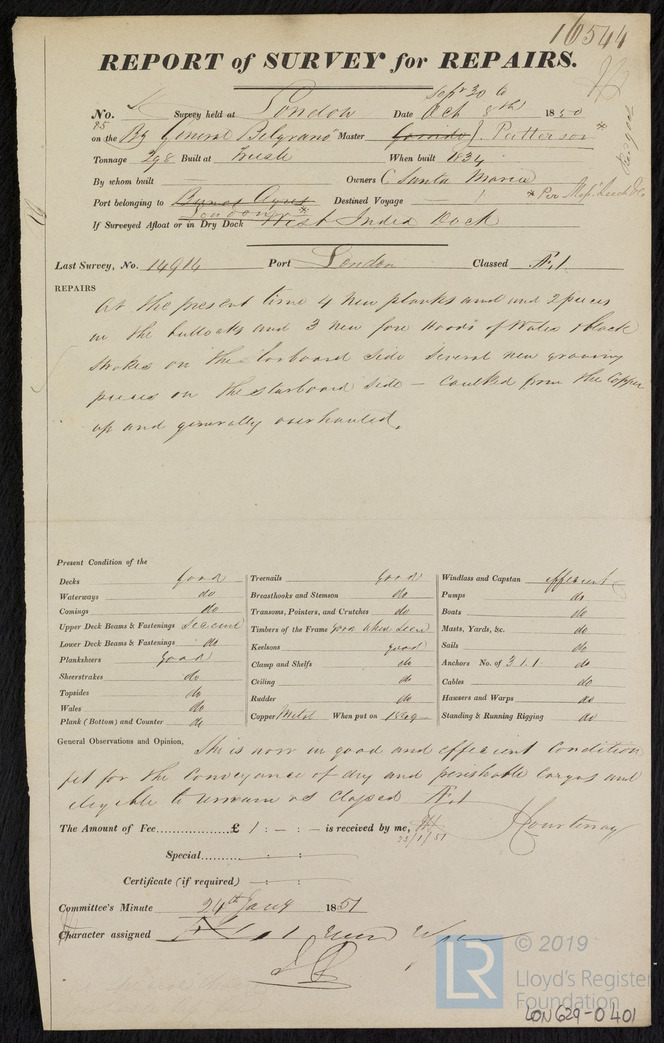 16544
REPORT of SURVEY for REPAIRS.
No. Survey held at London Date Sepr 30 to Oct 8th 1850
95
on the Bg General Belgrano Master J. Patterson *
Tonnage 298 Built at Trieste When built 1834
By whom built Owners C Santa Maria
Port belonging to Buenos Ayres Destined Voyage * Per Mess
London *
If Surveyed Afloat or in Dry Dock West India Dock
Last Survey, No. 14914 Port London Classed Æ.1.
REPAIRS
At the present time 4 new planks and 2 pieces
in the bulwarks and 3 new fore hoods of Wales & black
strakes on the larboard side several new graving
pieces on the starboard side – caulked from the Copper
up and generally overhauled.
Present Condition of the
Decks good
Waterways do
Comings do
Upper Deck Beams & Fastenings Second
Lower Deck Beams & Fastenings do
Planksheers good
Sheerstrakes do
Topsides do
Wales do
Plank (Bottom) and Counter do
Treenails good
Breasthooks and Stemson do
Transoms, Pointers, and Crutches do
Timbers of the Frame Good when seen
Keelsons good
Clamp and Shelfs do
Ceiling do
Rudder do
Copper Metal When put on 1849
Windlass and Capstan efficient
Pumps do
Boats do
Masts, Yards, &c. do
Sails do
Anchors No. of 3.1.1 do
Cables do
Hawsers and Warps do
Standing & Running Rigging do
General Observations and Opinion, She is now in good and efficient condition
fit for the conveyance of dry and perishable cargos and
eligible to remain as classed Æ.1
The Amount of Fee £ 1 : – : – is received by me, J Courtenay
23/1/51
Special : :
Certificate (if required) : :
Committee's Minute 24th Jany 1851
Character assigned Æ 1
© 2019
LR
Lloyd's Register
Foundation
LON629-0401